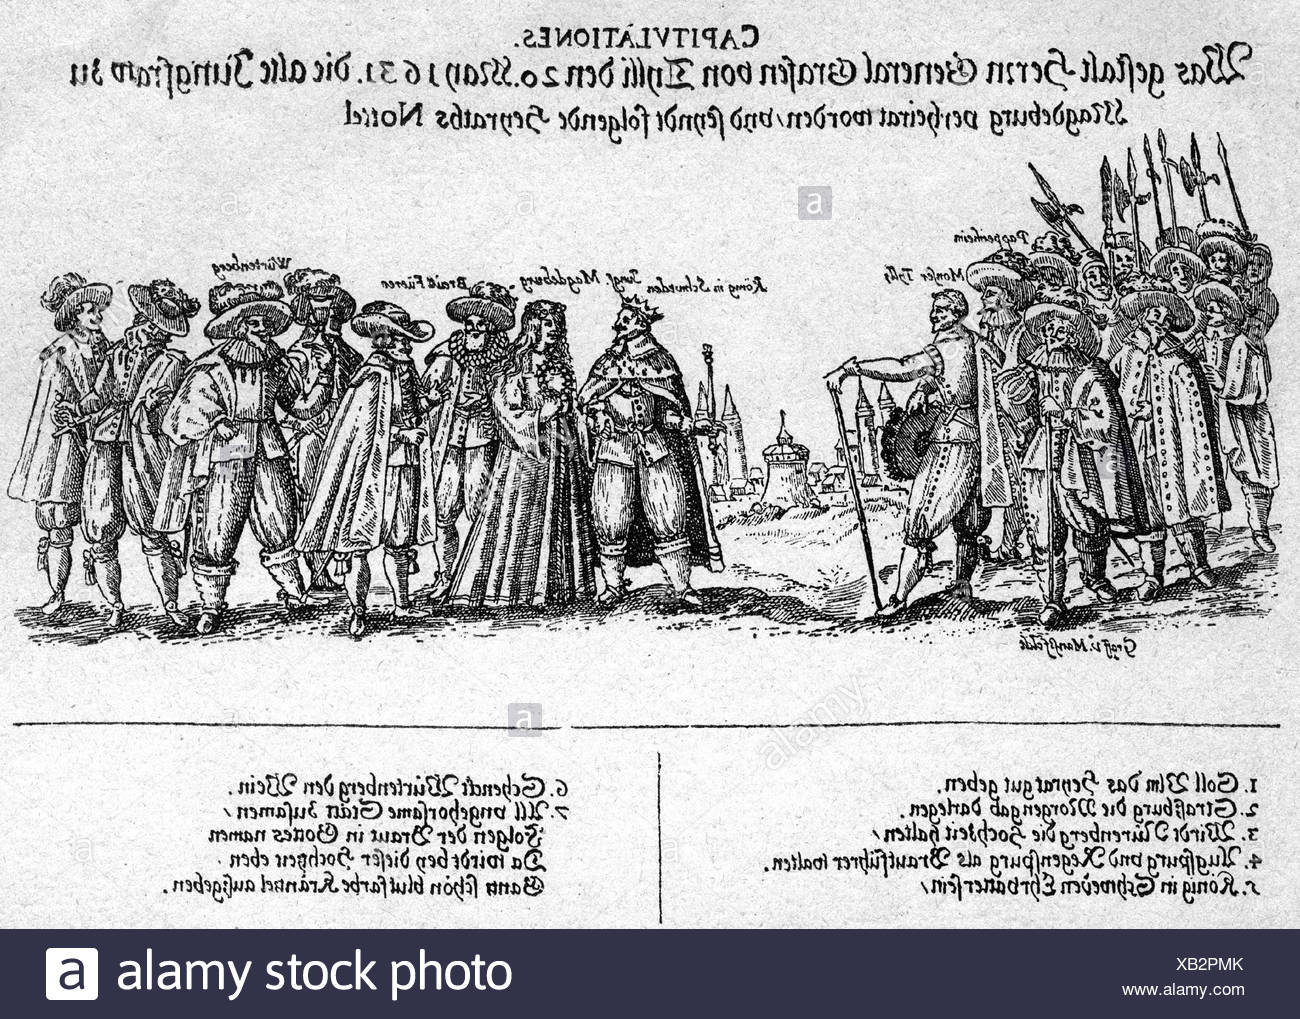 CAPITVLATIONES.
Was gestalt Herrn General Grafen von Tylli den 20. May 1631. die alte Jungfraw zu
Magdeburg verheirat worden / vnd seyndt folgende Heyraths Nottel
Würtenberg
Braut Füerer
Jungf Magdeburg
König in Schweden
Monser Tylly
Pappenheim
Graff v. Mansfelde
1. Soll Vlm das Heyrat gut geben.
2. Straßburg die Morgengab darlegen.
3. Wirdt Nürenberg die Hochzeit halten /
4. Augspurg vnd Regenspurg als Brautführer walten.
5. König in Schweden Ehrvatter sein /
6. Schenckt Würtenberg den Wein.
7. All vngehorsame Stätt zusamen /
Folgen der Braut in Gottes namen
Da wirdt bey dieser Hochzeit eben
Gantz schön blutfarbe Kräntzel außgeben.
alamy stock photo
XB2PMK
www.alamy.com